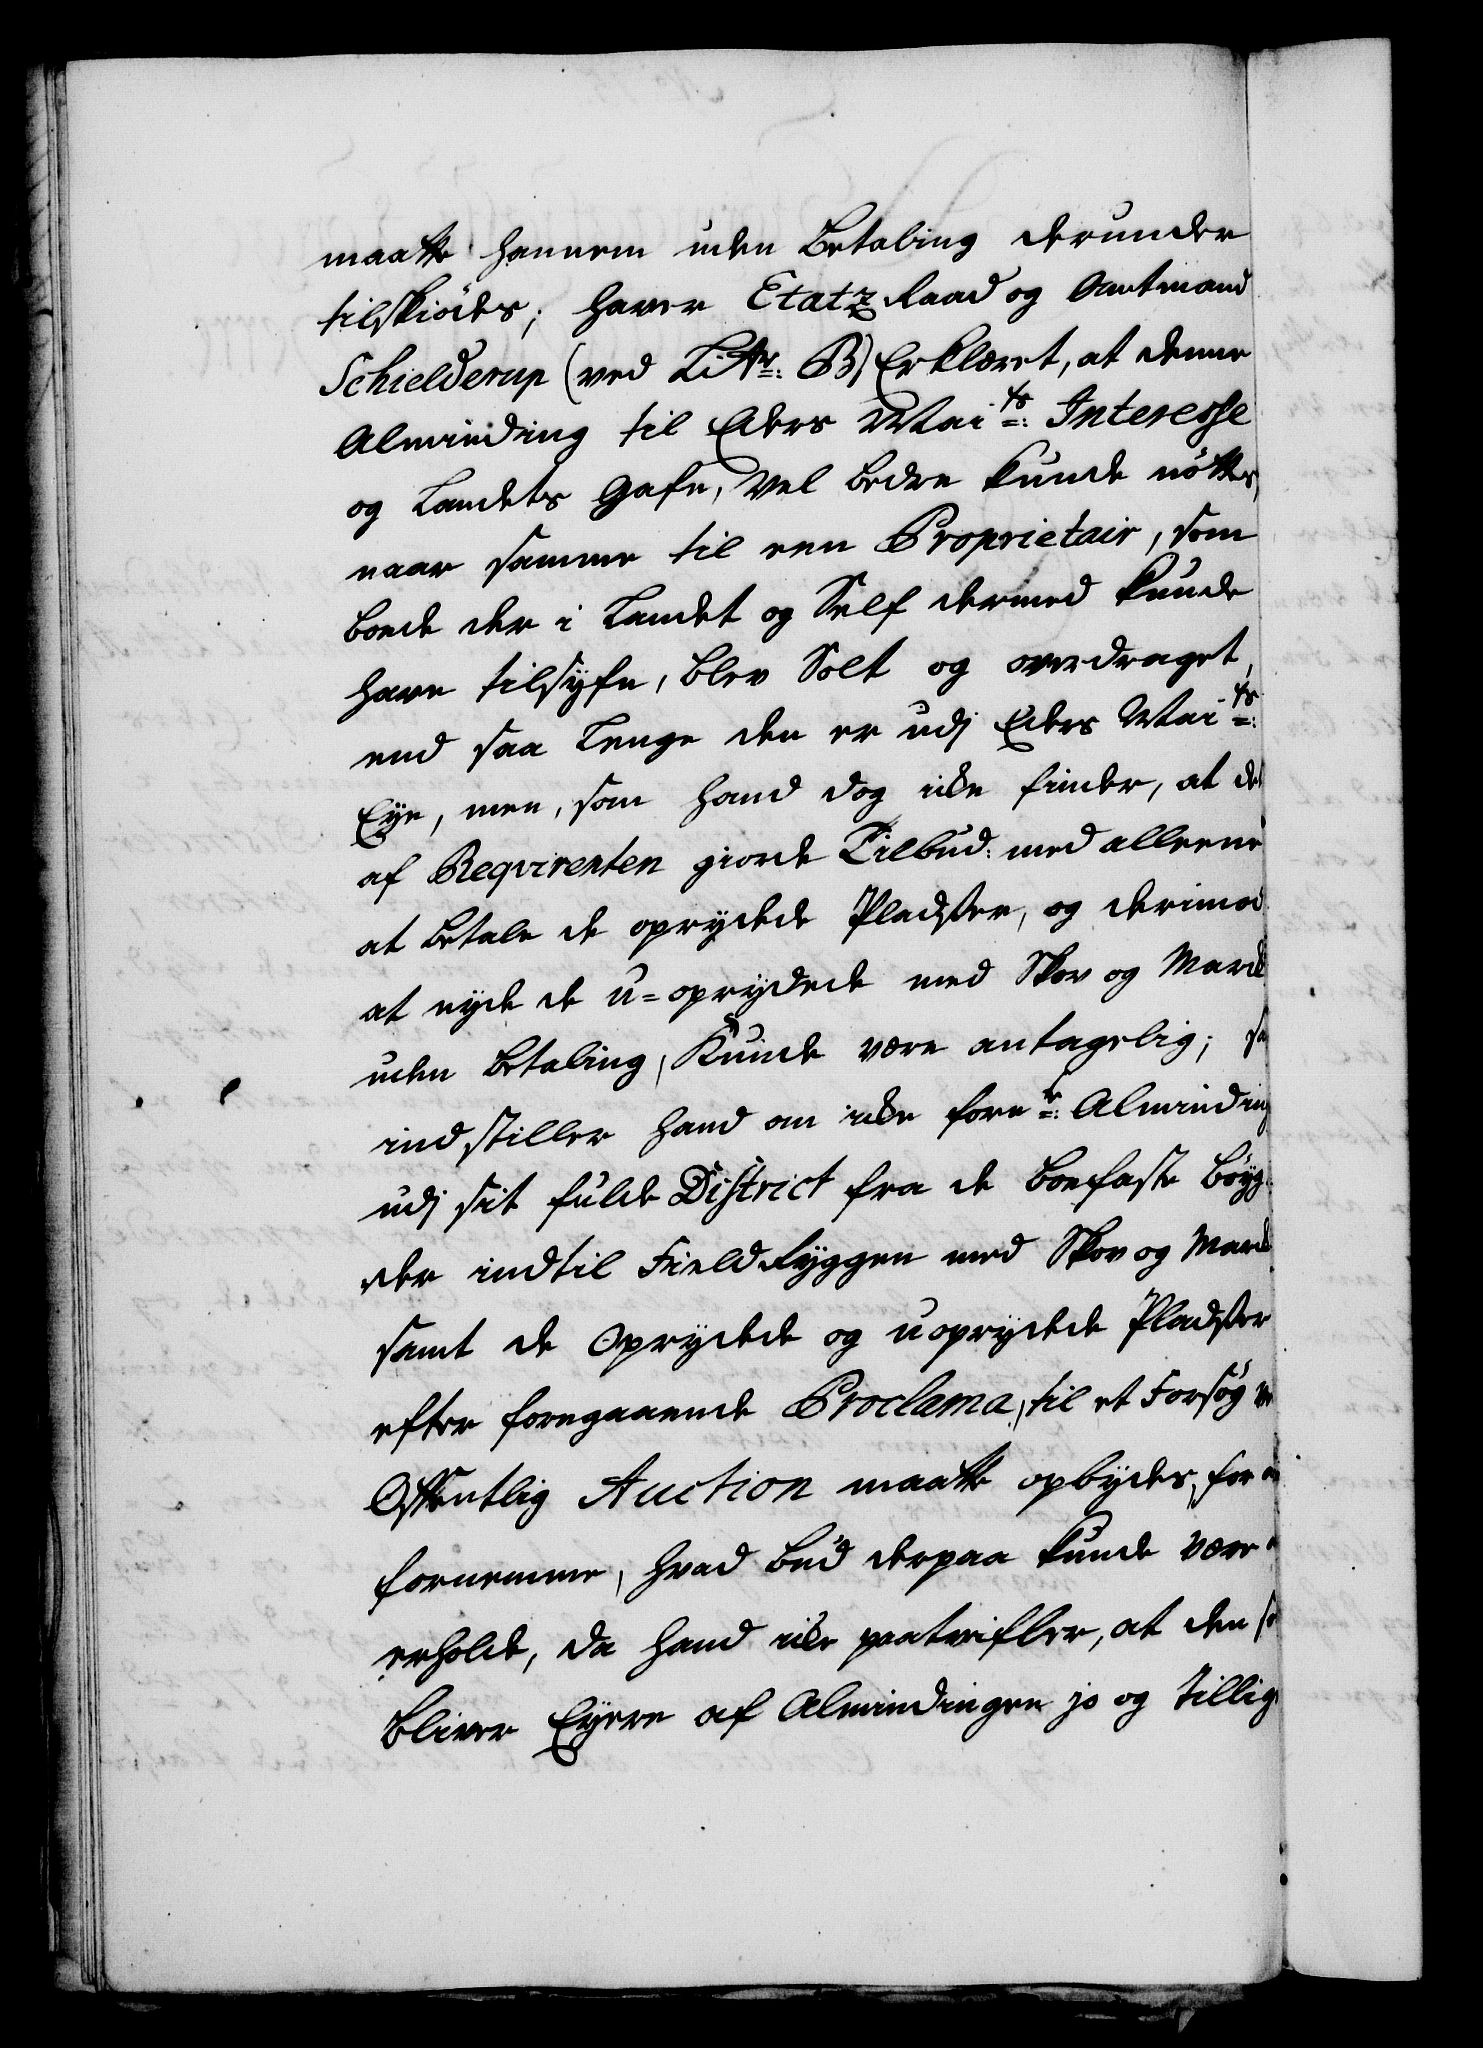 maatte hannem uden Betaling derunder
tilskiödes; haver Etatz Raad og Amtmand
Schielderup (ved Littr: B) Erklæret, at denne
Alminding til Eders Maits: Interesse
og Landets Gafn, vel bedre kunde nöttes,
naar samme til een Proprietair, som
boede der i Landet og Self dermed kunde
have tilsyfn, blev Solt og overdraget,
end saa Lenge den er udj Eders Maits:
Eye, men, som hand dog icke finder, at det
af Reqvirenten giorde Tilbud: med alleene
at betale de oprydede Pladsser, og derimod
at nyde de u-oprydede med Skov og Marck
uden betaling, Kunde være antagelig; saa
indstiller hand om icke forne: Alminding
udj sit fulde District fra de boefaste böyg-
der indtil Field Ryggen med Skov og Marck
samt de Oprydede og uoprydede Pladsser
efter foregaaende Proclama, til et Forsög ved
Offentlig Auction maatte opbydes, for at
fornemme, hvad bud derpaa kunde være at
erholde, da hand icke paatvifler, at den som
bliver Eyere af Almindingen jo og tillige